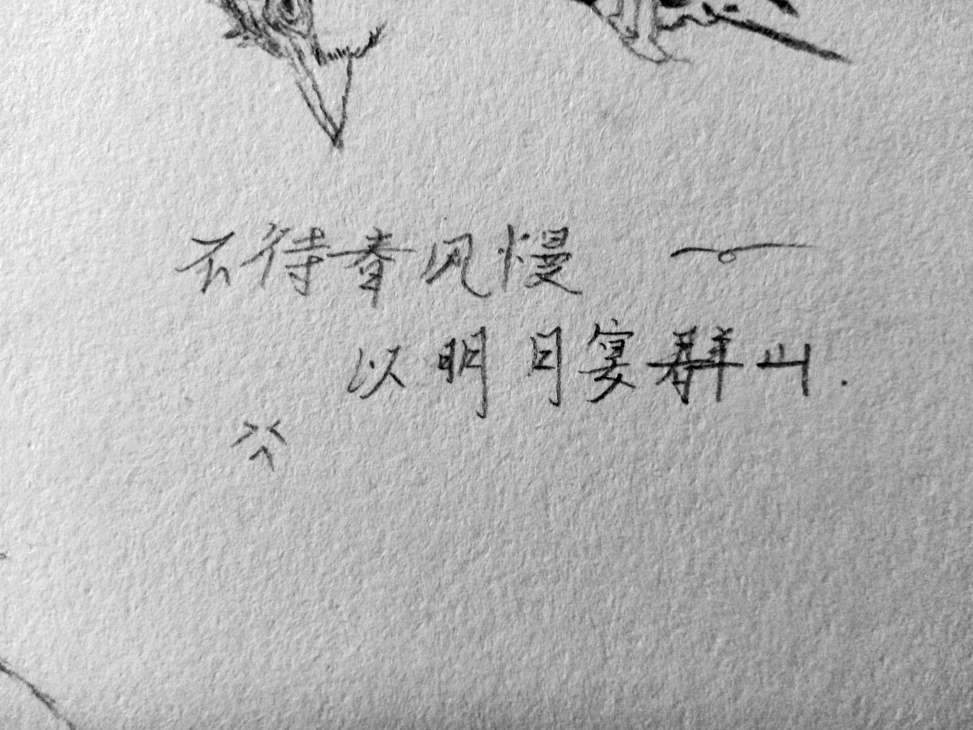 不待春风慢
以明日宴群山.